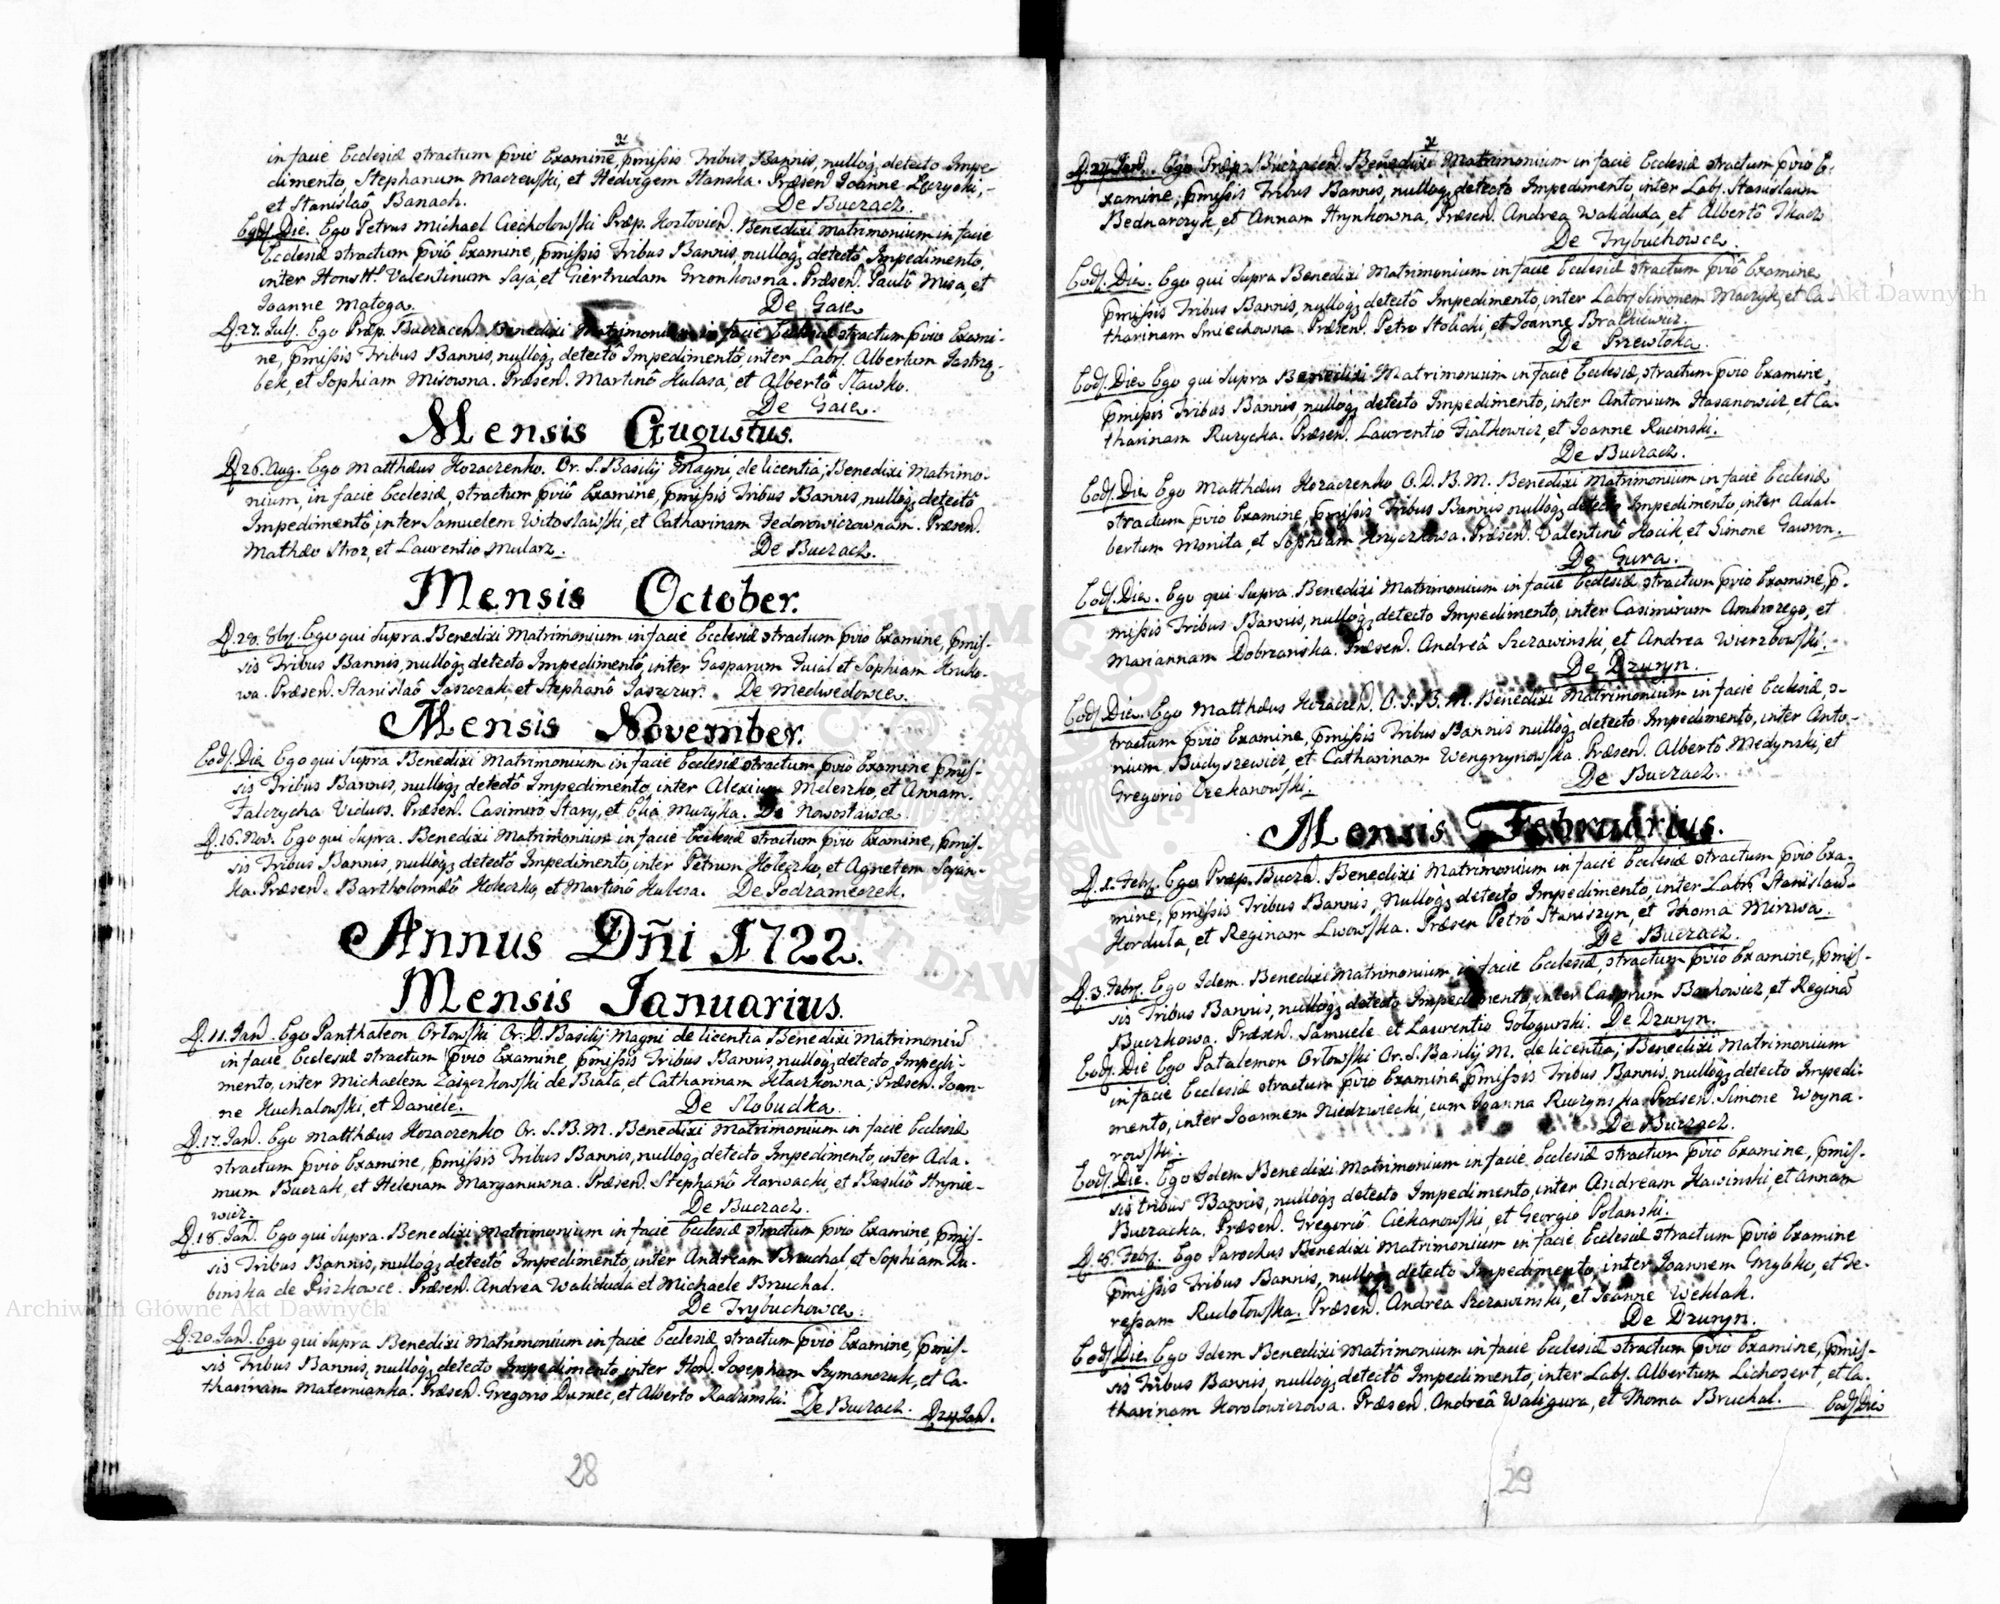 in facie Ecclesiæ stractum pvio Examine, pmissis Tribus Bannis, nulloq; detecto Impe-
dimento, Stephanum Maczewski, et Hedvigem Stanska. Præsen Joanne
et Stanislaô Banach. De Buczacz.
Eod. Die. Ego Petrus Michael Ciecholowski Præp. Kozlovien. Benedixi Matrimonium in facie
Ecclesiæ stractum pviô Examine, pmissis Tribus Bannis, nulloq; detectô Impedimento,
inter Honstt. Valentinum Saja, et Giertrudam Grzonkowna. Præsen. Paulô Misa, et
Joanne Matoga. De Gaie.
D. 27. Julj. Ego Præp. Buczacen. Benedixi Matrimonium in facie Ecclesiæ stractum pvio Exami-
ne, pmissis Tribus Bannis, nulloq; detectô Impedimentô, inter Labs. Albertum Jastrzę-
bek, et Sophiam Misowna. Præsen. Martinô Kulasa, et Albertô Slawko.
De Gaie.
Mensis Augustus.
D. 26. Aug. Ego Matthæus Kozaczenko. Or. S. Basilij Magni, de licentia, Benedixi Matrimo-
nium, in facie Ecclesiæ, stractum pviô Examine, pmissis Tribus Bannis, nulloq; detectô
Impedimentô, inter Samuelem Witoslawski, et Catharinam Fedorowiczownam. Præsen.
Mathæo Stroz, et Laurentio Mularz. De Buczacz.
Mensis October.
D. 28. 8br. Ego qui Supra. Benedixi Matrimonium in facie Ecclesiæ stractum pvio Examine, pmis-
sis Tribus Bannis, nulloq; detecto Impedimentô, inter Gasparum Furial et Sophiam Hruko-
wa. Præsen. Stanislaô Jaszczak, et Stephanô Jaszczur. De Medwedowce.
Mensis November.
Eod. Die Ego qui Supra Benedixi Matrimonium in facie Ecclesiæ stractum pvio Examine pmis-
sis Tribus Bannis, nulloq; detectô Impedimento, inter Alexium Meleszko, et Annam
Falczycha Viduas. Præsen. Casimirô Stary, et Elia Muzyka. De Nowostawce
D. 16. Nov. Ego qui Supra. Benedixi Matrimonium in facie Ecclesiæ stractum pvio Examine, pmis-
sis Tribus Bannis, nulloq; detectô Impedimento, inter Petrum Holeczko, et Agnetem Sojan-
ka. Præsen. Bartholomæô Holeczko, et Martinô Kulesa. De Podzameczek.
Annus Dñi 1722.
Mensis Januarius.
D. 11. Jan. Ego Panthaleon Orlowski Or. D. Basilij Magni de licentia Benedixi Matrimoniũ
in facie Ecclesiæ stractum pvio Examine, pmissis Tribus Bannis, nulloq; detecto Impedi-
mento, inter Michaelem Zaiączkowski de Biala, et Catharinam Klaczkowna; Præsen. Joan-
ne Kuchalowski, et Daniele. De Slobudka.
D. 17. Jan. Ego Matthæus Kozaczenko Or. S. B. M. Benedixi Matrimonium in facie Ecclesiæ
stractum pvio Examine, pmissis Tribus Bannis, nulloq; detecto Impedimento, inter Ada-
mum Buczak, et Helenam Maryanuwna. Præsen. Stephanô Harwacki, et Basiliô Hrynie-
wicz. De Buczacz.
D. 18. Jan. Ego qui Supra. Benedixi Matrimonium in facie Ecclesiæ stractum pvio Examine, pmis-
sis Tribus Bannis, nulloq; detectô Impedimento, inter Andream Bruchal, et Sophiam Du-
binska de Piszkowce. Præsen. Andrea Waliduda et Michaele Bruchal.
De Trybuchowce.
D. 20. Jan. Ego qui Supra Benedixi Matrimonium in facie Ecclesiæ stractum pvio Examine, pmis-
sis Tribus Bannis, nulloq; detecto Impedimento, inter Hon. Josepham Szymanczuk, et Ca-
tharinam Maternianka. Præsen. Gregorio Dumec, et Alberto Radzinski. De Buczacz. D. 24 Jan.
28
D. 24 Jan. Ego Præp. Buczacen. Benedixi Matrimonium in facie Ecclesiæ stractum, pvio E-
xamine, pmissis Tribus Bannis, nulloq; detecto Impedimento, inter Labs. Stanislaum
Bednarczyk, et Annam Hrynkowna, Præsen. Andrea Waliduda, et Albertô Tkacz
De Trybuchowce.
Eod. Die. Ego qui Supra Benedixi Matrimonium in facie Ecclesiæ stractum pviô Examine
pmissis Tribus Bannis, nulloq; detectô Impedimento, inter Labs Simonem Maczyk, et Ca-
tharinam Smiechowna. Præsen. Petro Stolicki, et Joanne Bratkiewicz.
De Przewloka.
Eod. Die Ego qui Supra Benedixi Matrimonium in facie Ecclesiæ, stractum pvio Examine,
pmissis Tribus Bannis, nulloq; detecto Impedimento, inter Antonium Hasanowicz, et Ca-
tharinam Ruzycka. Præsen. Laurentio Fialkowicz, et Joanne Rucinski.
De Buczacz.
Eod. Die Ego Matthæus Kozaczenko O. D. B. M. Benedixi Matrimonium in facie Ecclesiæ
stractum pvio Examine, pmissis Tribus Bannis nulloq; detecto Impedimento, inter Adal-
bertum Monita, et Sophiam Kryczkowa. Præsen. Valentinô Kocik, et Simone Gawron.
De Gura.
Eod. Die. Ego qui Supra. Benedixi Matrimonium in facie Ecclesiæ stractum pvio Examine, p-
missis Tribus Bannis, nulloq; detecto Impedimento, inter Casimirum Ambrozego, et
Mariannam Dobrzanska. Præsen. Andreâ Szczawinski, et Andrea Wierzbowski.
De Dzuryn.
Eod. Die. Ego Matthæus Kozaczen. O. S. B. M. Benedixi Matrimonium in facie Ecclesiæ, s-
tractum pvio Examine, pmissis Tribus Bannis nulloq; detecto Impedimento, inter Anto-
nium Budyszewicz, et Catharinam Wengrynowska. Præsen. Albertô Medynski, et
Gregorio Czekanowski. De Buczacz.
Mensis Februarius.
D. 1. Febr. Ego Præp. Bucza. Benedixi Matrimonium in facie Ecclesiæ stractum pvio Exa-
mine, pmissis Tribus Bannis, nulloq; detecto Impedimento, inter Labr. Stanislaũ
Horduta, et Reginam Lwowska. Præsen Petrô Staniszyn, et Thoma Mirzwa.
De Buczacz.
D. 3. Febr. Ego Idem. Benedixi Matrimonium, in facie Ecclesiæ, stractum pvio Examine, pmis-
sis Tribus Bannis, nulloq; detecto Impedimento, inter Casprum Bachowicz, et Reginã
Buczkowa. Præsen. Samuele et Laurentio Gologurski. De Dzuryn.
Eod. Die Ego Patalemon Orlowski Or. S. Basilij M. de licentia; Benedixi Matrimonium
in facie Ecclesiæ stractum pvio Examine pmissis Tribus Bannis, nulloq; detecto Impedi-
mento, inter Joannem Niedzwiecki, cum Joanna Ruczynska Præsen. Simone Woyna-
rowski. De Buczacz.
Eod. Die. Ego Idem Benedixi Matrimonium in facie Ecclesiæ stractum pvio Examine, pmis-
sis tribus Bannis, nulloq; detecto Impedimento, inter Andream Hawinski, et Annam
Buczacka. Præsen. Gregoriô. Ciekanowski, et Georgio Polanski.
D. 8. Febr. Ego Parochus Benedixi Matrimonium in facie Ecclesiæ stractum pvio Examine
pmissis Tribus Bannis, nulloq; detecto Impedimento, inter Joannem Grzybko, et Te-
ressam Rudolowska. Præsen. Andrea Szczawinski, et Joanne Weklak.
De Dzuryn.
Eod. Die. Ego Idem Benedixi Matrimonium in facie Ecclesiæ stractum pvio Examine, pmis-
sis Tribus Bannis, nulloq; detectô Impedimento, inter Labs. Albertum Lichozert, et Ca-
tharinam Korolowiczowa. Præsen. Andreâ Waligura, et Thoma Bruchal. Eod. Die
29
Archiwum Główne Akt Dawnych
Archiwum Główne Akt Dawnych